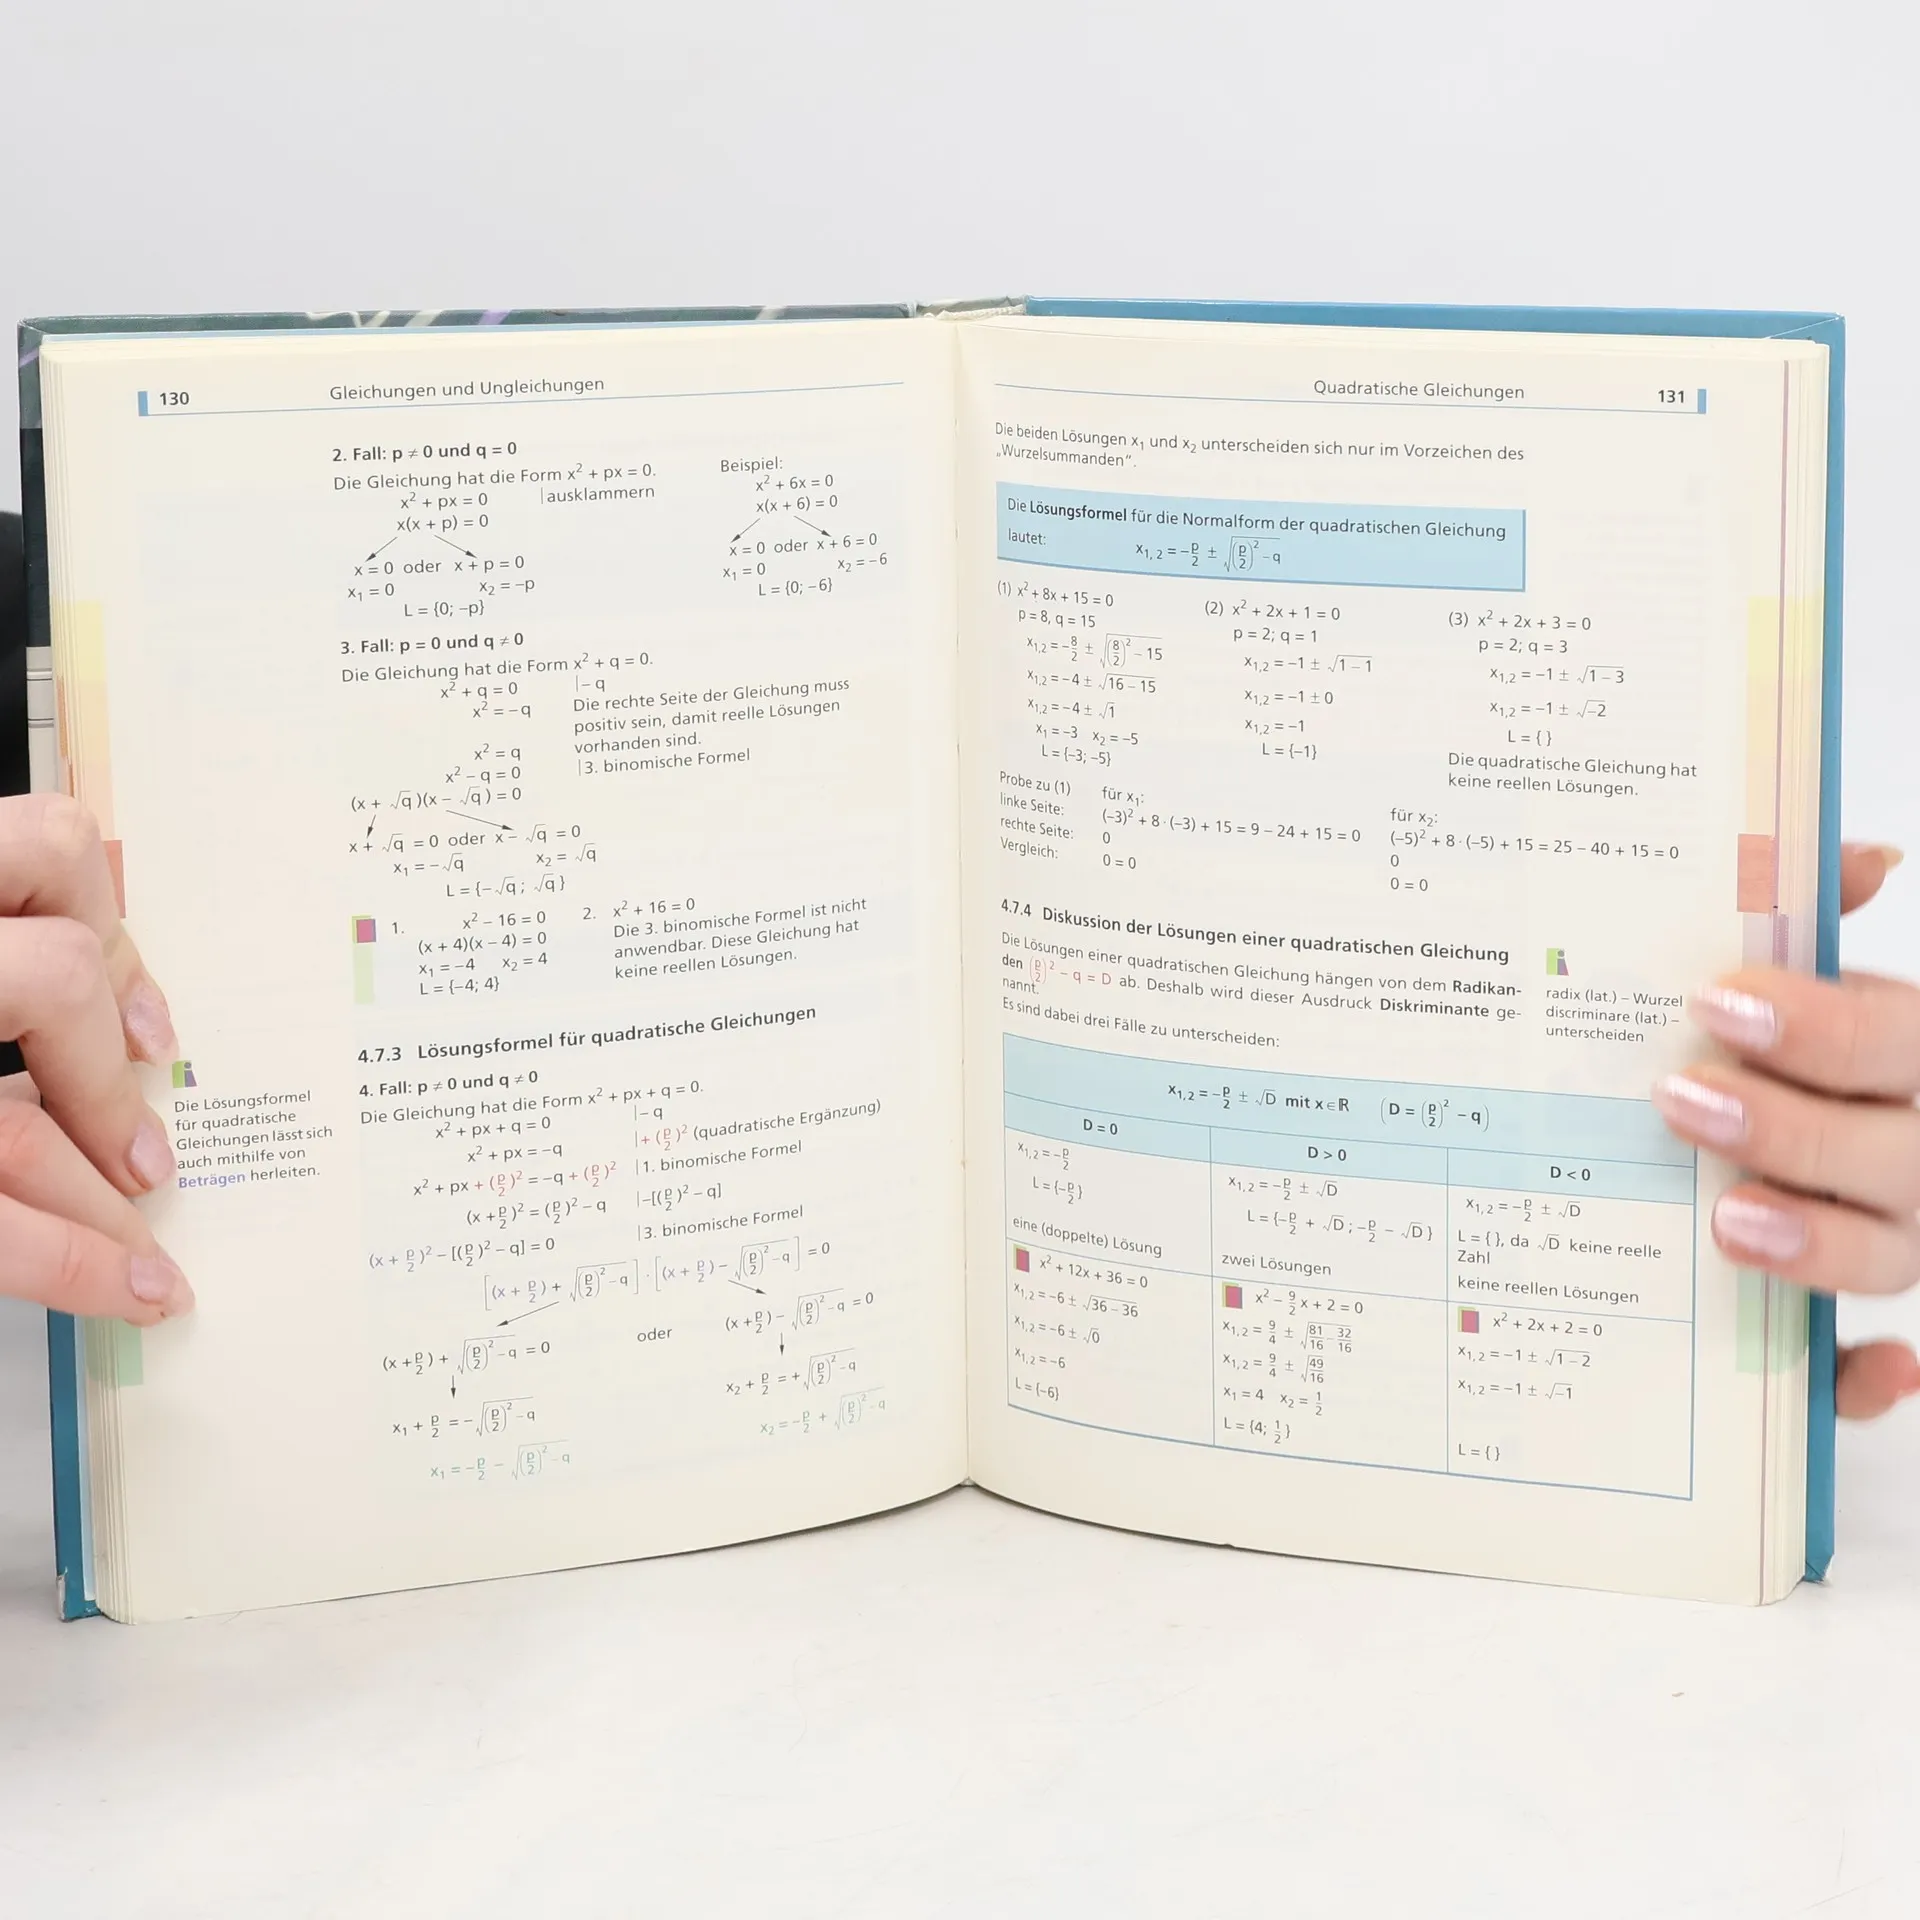 130 Gleichungen und Ungleichungen
2. Fall: p ≠ 0 und q = 0
Die Gleichung hat die Form x² + px = 0.
x² + px = 0 | ausklammern
x(x + p) = 0
x = 0 oder x + p = 0
x₁ = 0 x₂ = −p
L = {0; −p}
Beispiel:
x² + 6x = 0
x(x + 6) = 0
x = 0 oder x + 6 = 0
x₁ = 0 x₂ = −6
L = {0; −6}
3. Fall: p = 0 und q ≠ 0
Die Gleichung hat die Form x² + q = 0.
x² + q = 0 | − q
x² = −q Die rechte Seite der Gleichung muss
positiv sein, damit reelle Lösungen
vorhanden sind.
x² = q
x² − q = 0 | 3. binomische Formel
(x + √q)(x − √q) = 0
x + √q = 0 oder x − √q = 0
x₁ = −√q x₂ = √q
L = {−√q; √q}
1. x² − 16 = 0
(x + 4)(x − 4) = 0
x₁ = −4 x₂ = 4
L = {−4; 4}
2. x² + 16 = 0
Die 3. binomische Formel ist nicht
anwendbar. Diese Gleichung hat
keine reellen Lösungen.
4.7.3 Lösungsformel für quadratische Gleichungen
Die Lösungsformel
für quadratische
Gleichungen lässt sich
auch mithilfe von
Beträgen herleiten.
4. Fall: p ≠ 0 und q ≠ 0
Die Gleichung hat die Form x² + px + q = 0.
x² + px + q = 0 | − q
x² + px = −q | + (p/2)² (quadratische Ergänzung)
x² + px + (p/2)² = −q + (p/2)² | 1. binomische Formel
(x + p/2)² = (p/2)² − q | −[(p/2)² − q]
(x + p/2)² − [(p/2)² − q] = 0 | 3. binomische Formel
[(x + p/2) + √((p/2)² − q)] · [(x + p/2) − √((p/2)² − q)] = 0
(x + p/2) + √((p/2)² − q) = 0 oder (x + p/2) − √((p/2)² − q) = 0
x₁ + p/2 = −√((p/2)² − q) x₂ + p/2 = +√((p/2)² − q)
x₁ = −p/2 − √((p/2)² − q) x₂ = −p/2 + √((p/2)² − q)
Quadratische Gleichungen 131
Die beiden Lösungen x₁ und x₂ unterscheiden sich nur im Vorzeichen des
„Wurzelsummanden“.
Die Lösungsformel für die Normalform der quadratischen Gleichung
lautet: x₁,₂ = −p/2 ± √((p/2)² − q)
(1) x² + 8x + 15 = 0
p = 8, q = 15
x₁,₂ = −8/2 ± √((8/2)² − 15)
x₁,₂ = −4 ± √(16 − 15)
x₁,₂ = −4 ± √1
x₁ = −3 x₂ = −5
L = {−3; −5}
(2) x² + 2x + 1 = 0
p = 2; q = 1
x₁,₂ = −1 ± √(1 − 1)
x₁,₂ = −1 ± 0
x₁,₂ = −1
L = {−1}
(3) x² + 2x + 3 = 0
p = 2; q = 3
x₁,₂ = −1 ± √(1 − 3)
x₁,₂ = −1 ± √−2
L = { }
Die quadratische Gleichung hat
keine reellen Lösungen.
Probe zu (1) für x₁: für x₂:
linke Seite: (−3)² + 8 · (−3) + 15 = 9 − 24 + 15 = 0 (−5)² + 8 · (−5) + 15 = 25 − 40 + 15 = 0
rechte Seite: 0 0
Vergleich: 0 = 0 0 = 0
4.7.4 Diskussion der Lösungen einer quadratischen Gleichung
Die Lösungen einer quadratischen Gleichung hängen von dem Radikan-
den (p/2)² − q = D ab. Deshalb wird dieser Ausdruck Diskriminante ge-
nannt.
Es sind dabei drei Fälle zu unterscheiden:
radix (lat.) – Wurzel
discriminare (lat.) –
unterscheiden
x₁,₂ = −p/2 ± √D mit x ∈ ℝ (D = (p/2)² − q)
D = 0
x₁,₂ = −p/2
L = {−p/2}
eine (doppelte) Lösung
x² + 12x + 36 = 0
x₁,₂ = −6 ± √(36 − 36)
x₁,₂ = −6 ± √0
x₁,₂ = −6
L = {−6}
D > 0
x₁,₂ = −p/2 ± √D
L = {−p/2 + √D; −p/2 − √D}
zwei Lösungen
x² − 9/2 x + 2 = 0
x₁,₂ = 9/4 ± √(81/16 − 32/16)
x₁,₂ = 9/4 ± √(49/16)
x₁ = 4 x₂ = 1/2
L = {4; 1/2}
D < 0
x₁,₂ = −p/2 ± √D
L = { }, da √D keine reelle
Zahl
keine reellen Lösungen
x² + 2x + 2 = 0
x₁,₂ = −1 ± √(1 − 2)
x₁,₂ = −1 ± √−1
L = { }